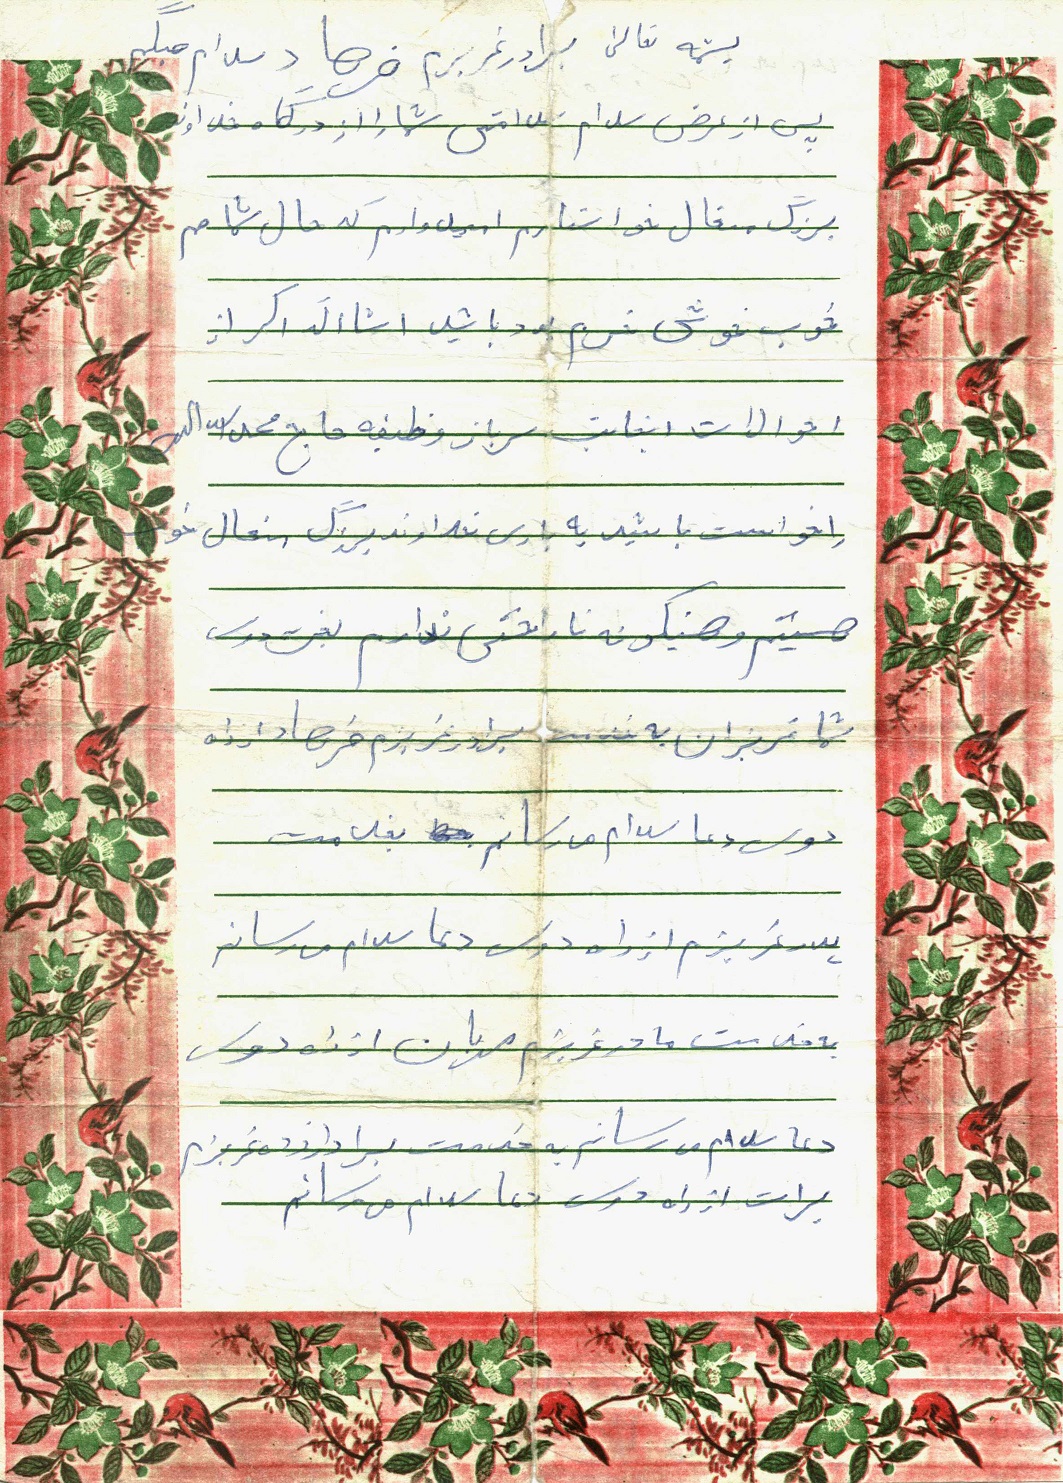 بسمه تعالی برادر عزیزم فرهاد سلام میگم
پس از عرض سلام سلامتی شما را از درگاه خداوند
بزرگ متعال خواستارم امیدوارم که حال شما هم
خوب خوشی خرم بود باشید انشاالله اگر از
احوالات اینجانب سرباز وظیفه حاج محمد
را خواست باشید به یاری خداوند بزرگ متعال خوب
هستیم و هیچگونه ناراحتی ندارم بغیر دوری
شما عزیزان به خدمت برادر عزیزم فرهاد از راه
دوری دعا سلام می رسانم بخدمت
پدر عزیزم از راه دوری دعا سلام می رسانم
به خدمت مادر عزیزم مهربان از راه دوری
دعا سلام می رسانم به خدمت برادرزاده عزیزم
برات از راه دوری دعا سلام می رسانم